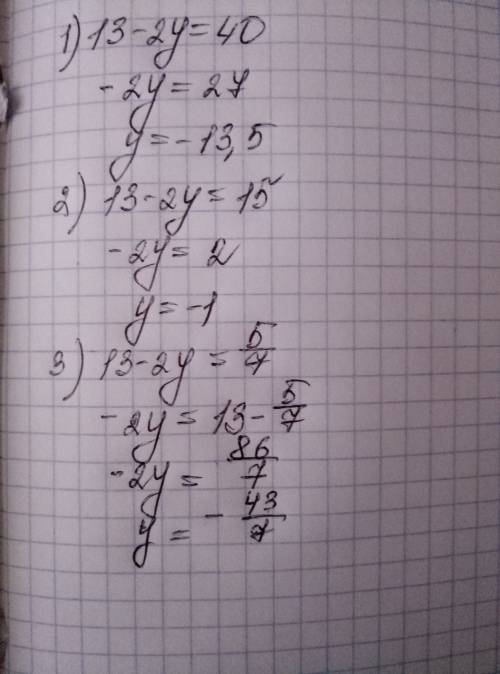 1) 13-2y=40
-2y=27
y=-13,5
2) 13-2y=15
-2y=2
y=-1
3) 13-2y=5/7
-2y=13-5/7
-2y=86/7
y=-43/7